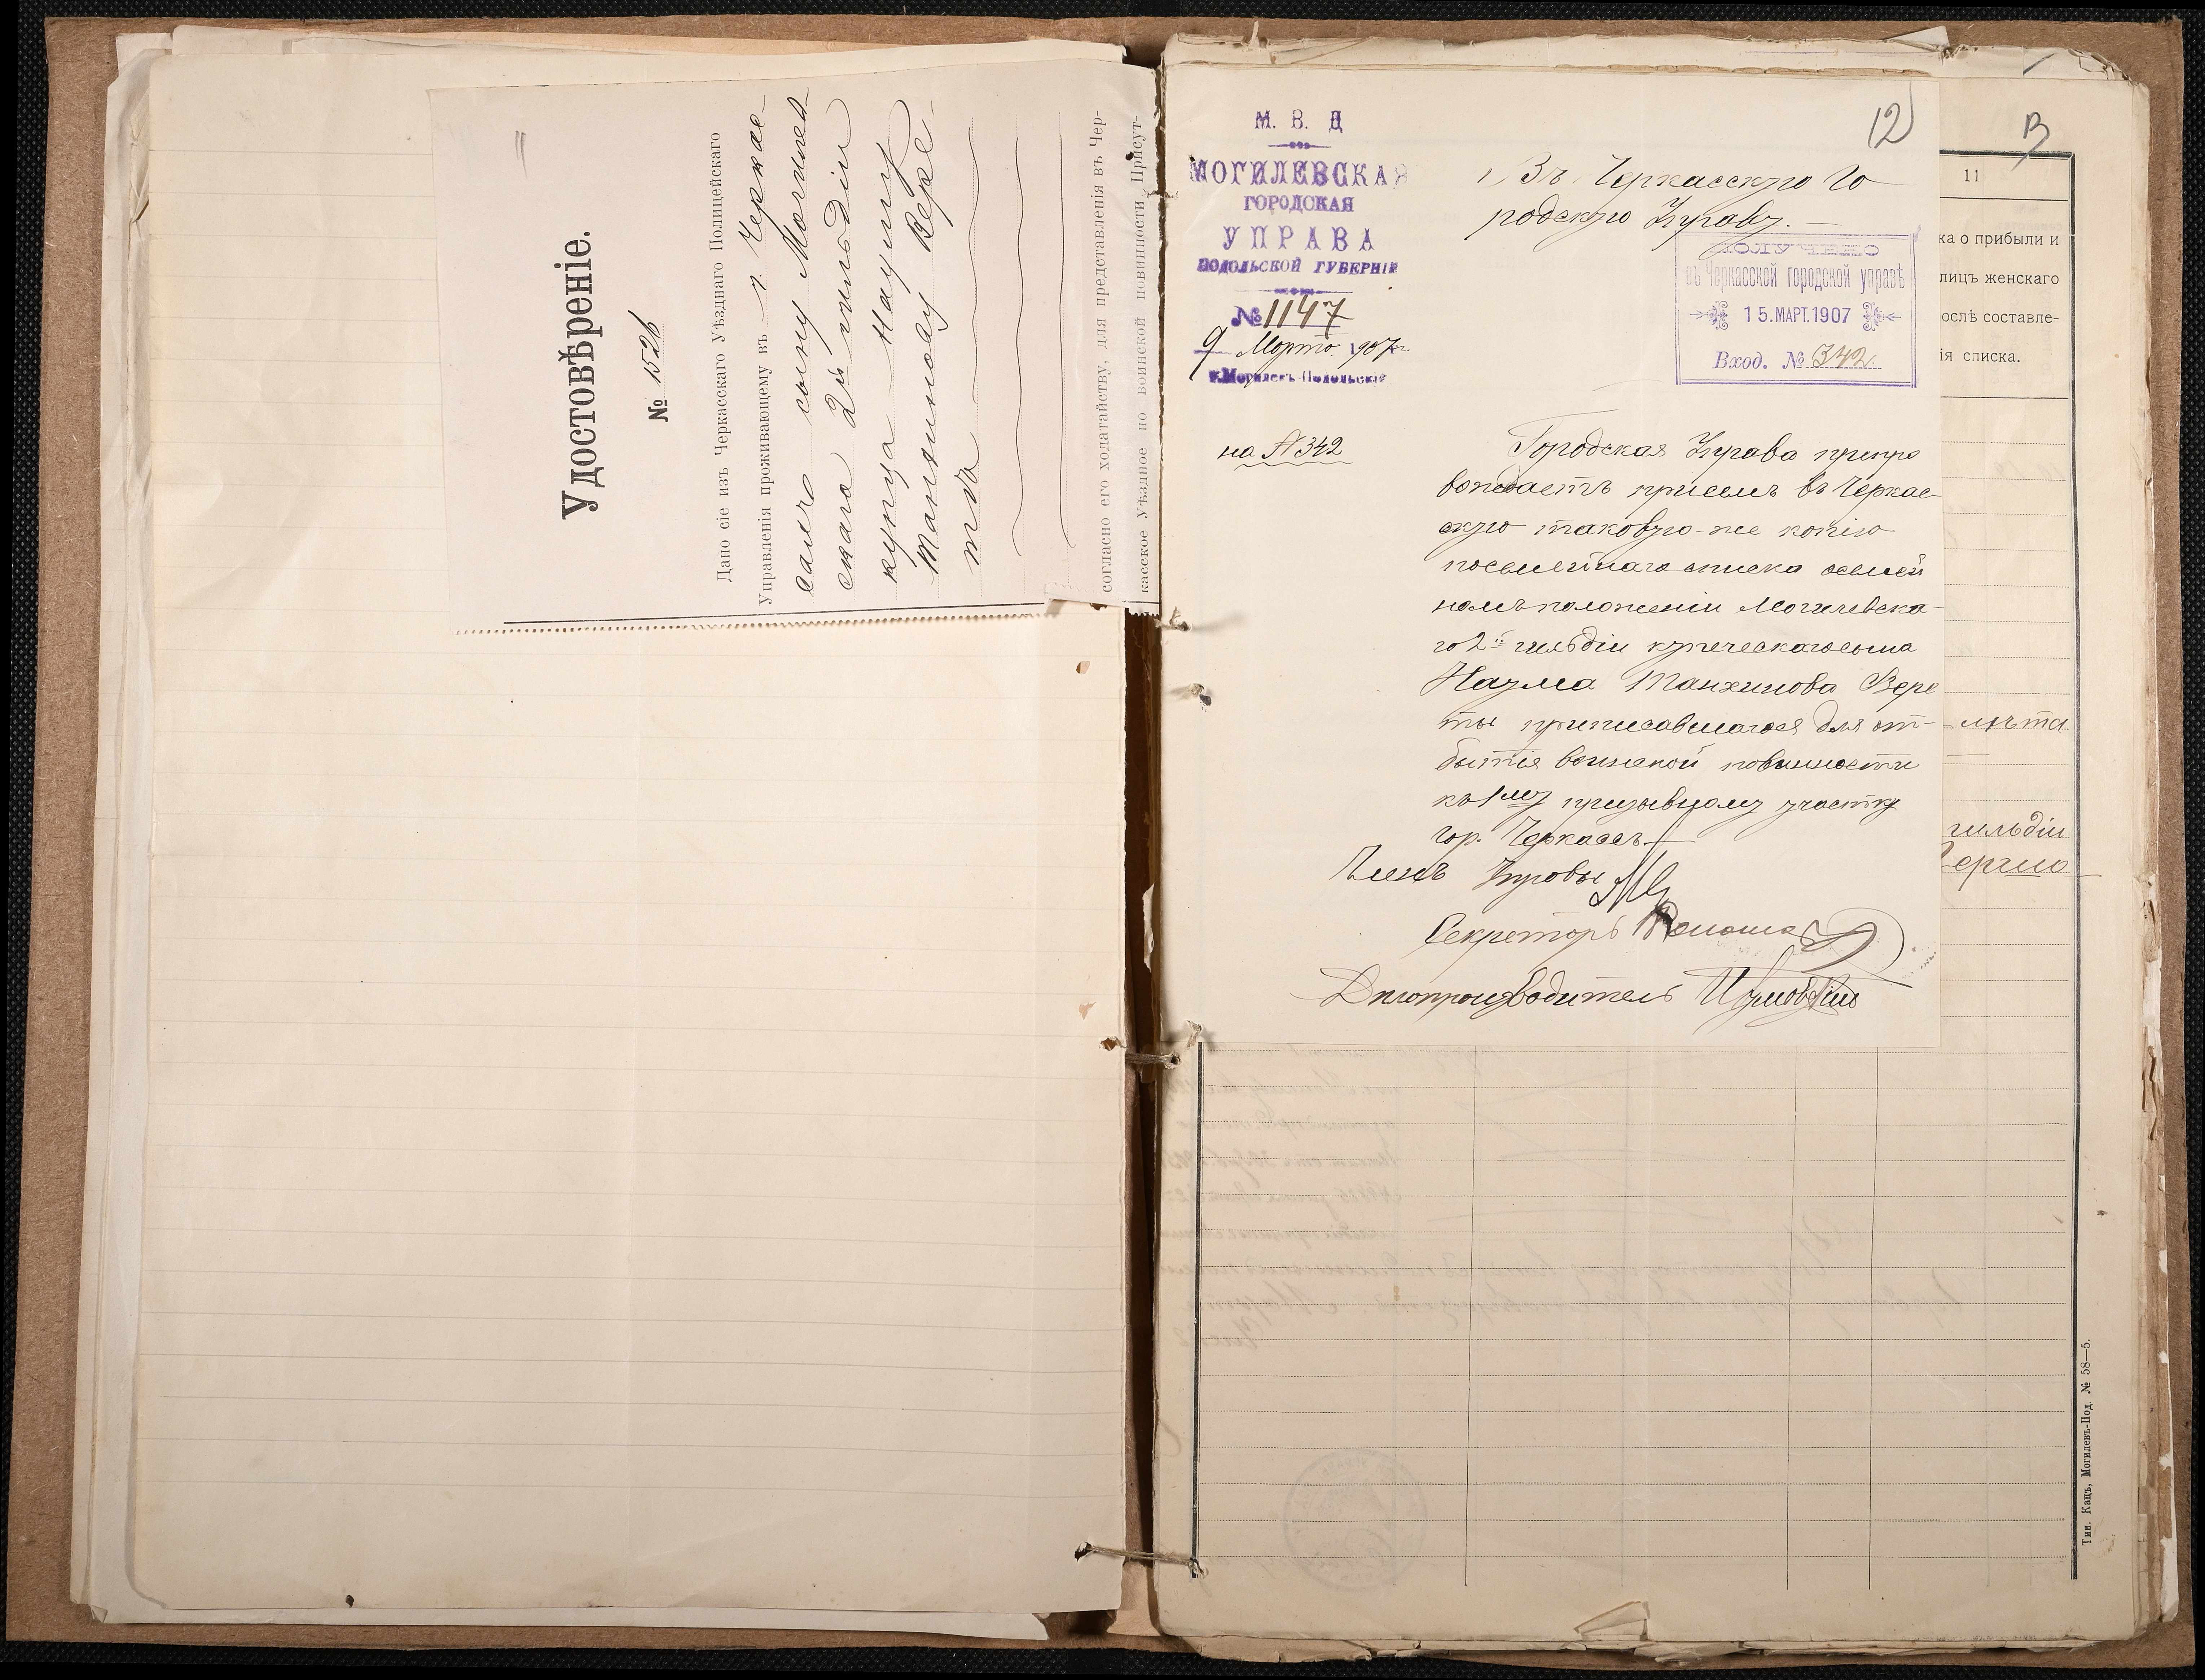 11
Удостовѣреніе.
№ 1526
Дано сіе изъ Черкасскаго Уѣзднаго Полицейскаго
Управленія проживающему въ г. Черкас-
сахъ сыну Могилев-
скаго 2й гильдіи
купца Науму
Танхимову Вере-
та
согласно его ходатайству, для представленія въ Чер-
касское Уѣздное по воинской повинности Присут-
12
М. В. Д
МОГИЛЕВСКАЯ
ГОРОДСКАЯ
УПРАВА
ПОДОЛЬСКОЙ ГУБЕРНІИ
№ 1147
9 Марта 1907 г.
г. Могилевъ-Подольскій
Въ Черкасскую Го
родскую Управу.
ПОЛУЧЕНО
въ Черкасской городской управѣ
15. МАРТ. 1907
Вход. № 342.
на № 342
Городская Управа препро
вождаетъ при семъ въ Черкас-
скую таковую-же копію
посемейнаго списка о семей
номъ положеніи Могилевска-
го 2й гильдіи купеческаго сына
Наума Танхимова Вере
ты приписавшагося для от-
бытія воинской повинности
къ 1му призывному участку
гор. Черкассъ.
Членъ Управы
Секретарь
Дѣлопроизводитель
13
11
ка о прибыли и
лицъ женскаго
ослѣ составле-
ія списка.
лѣта
гильдіи
Тип. Кацъ, Могилевъ-Под. № 58—5.